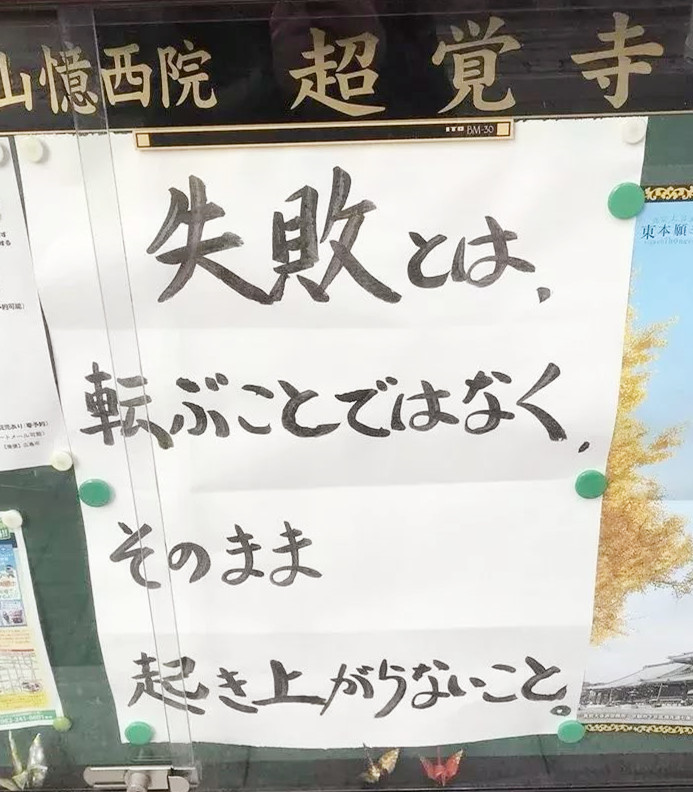 山憶西院 超覚寺
ITO BM-30
失敗とは、
転ぶことではなく、
そのまま
起き上がらないこと。
東本願